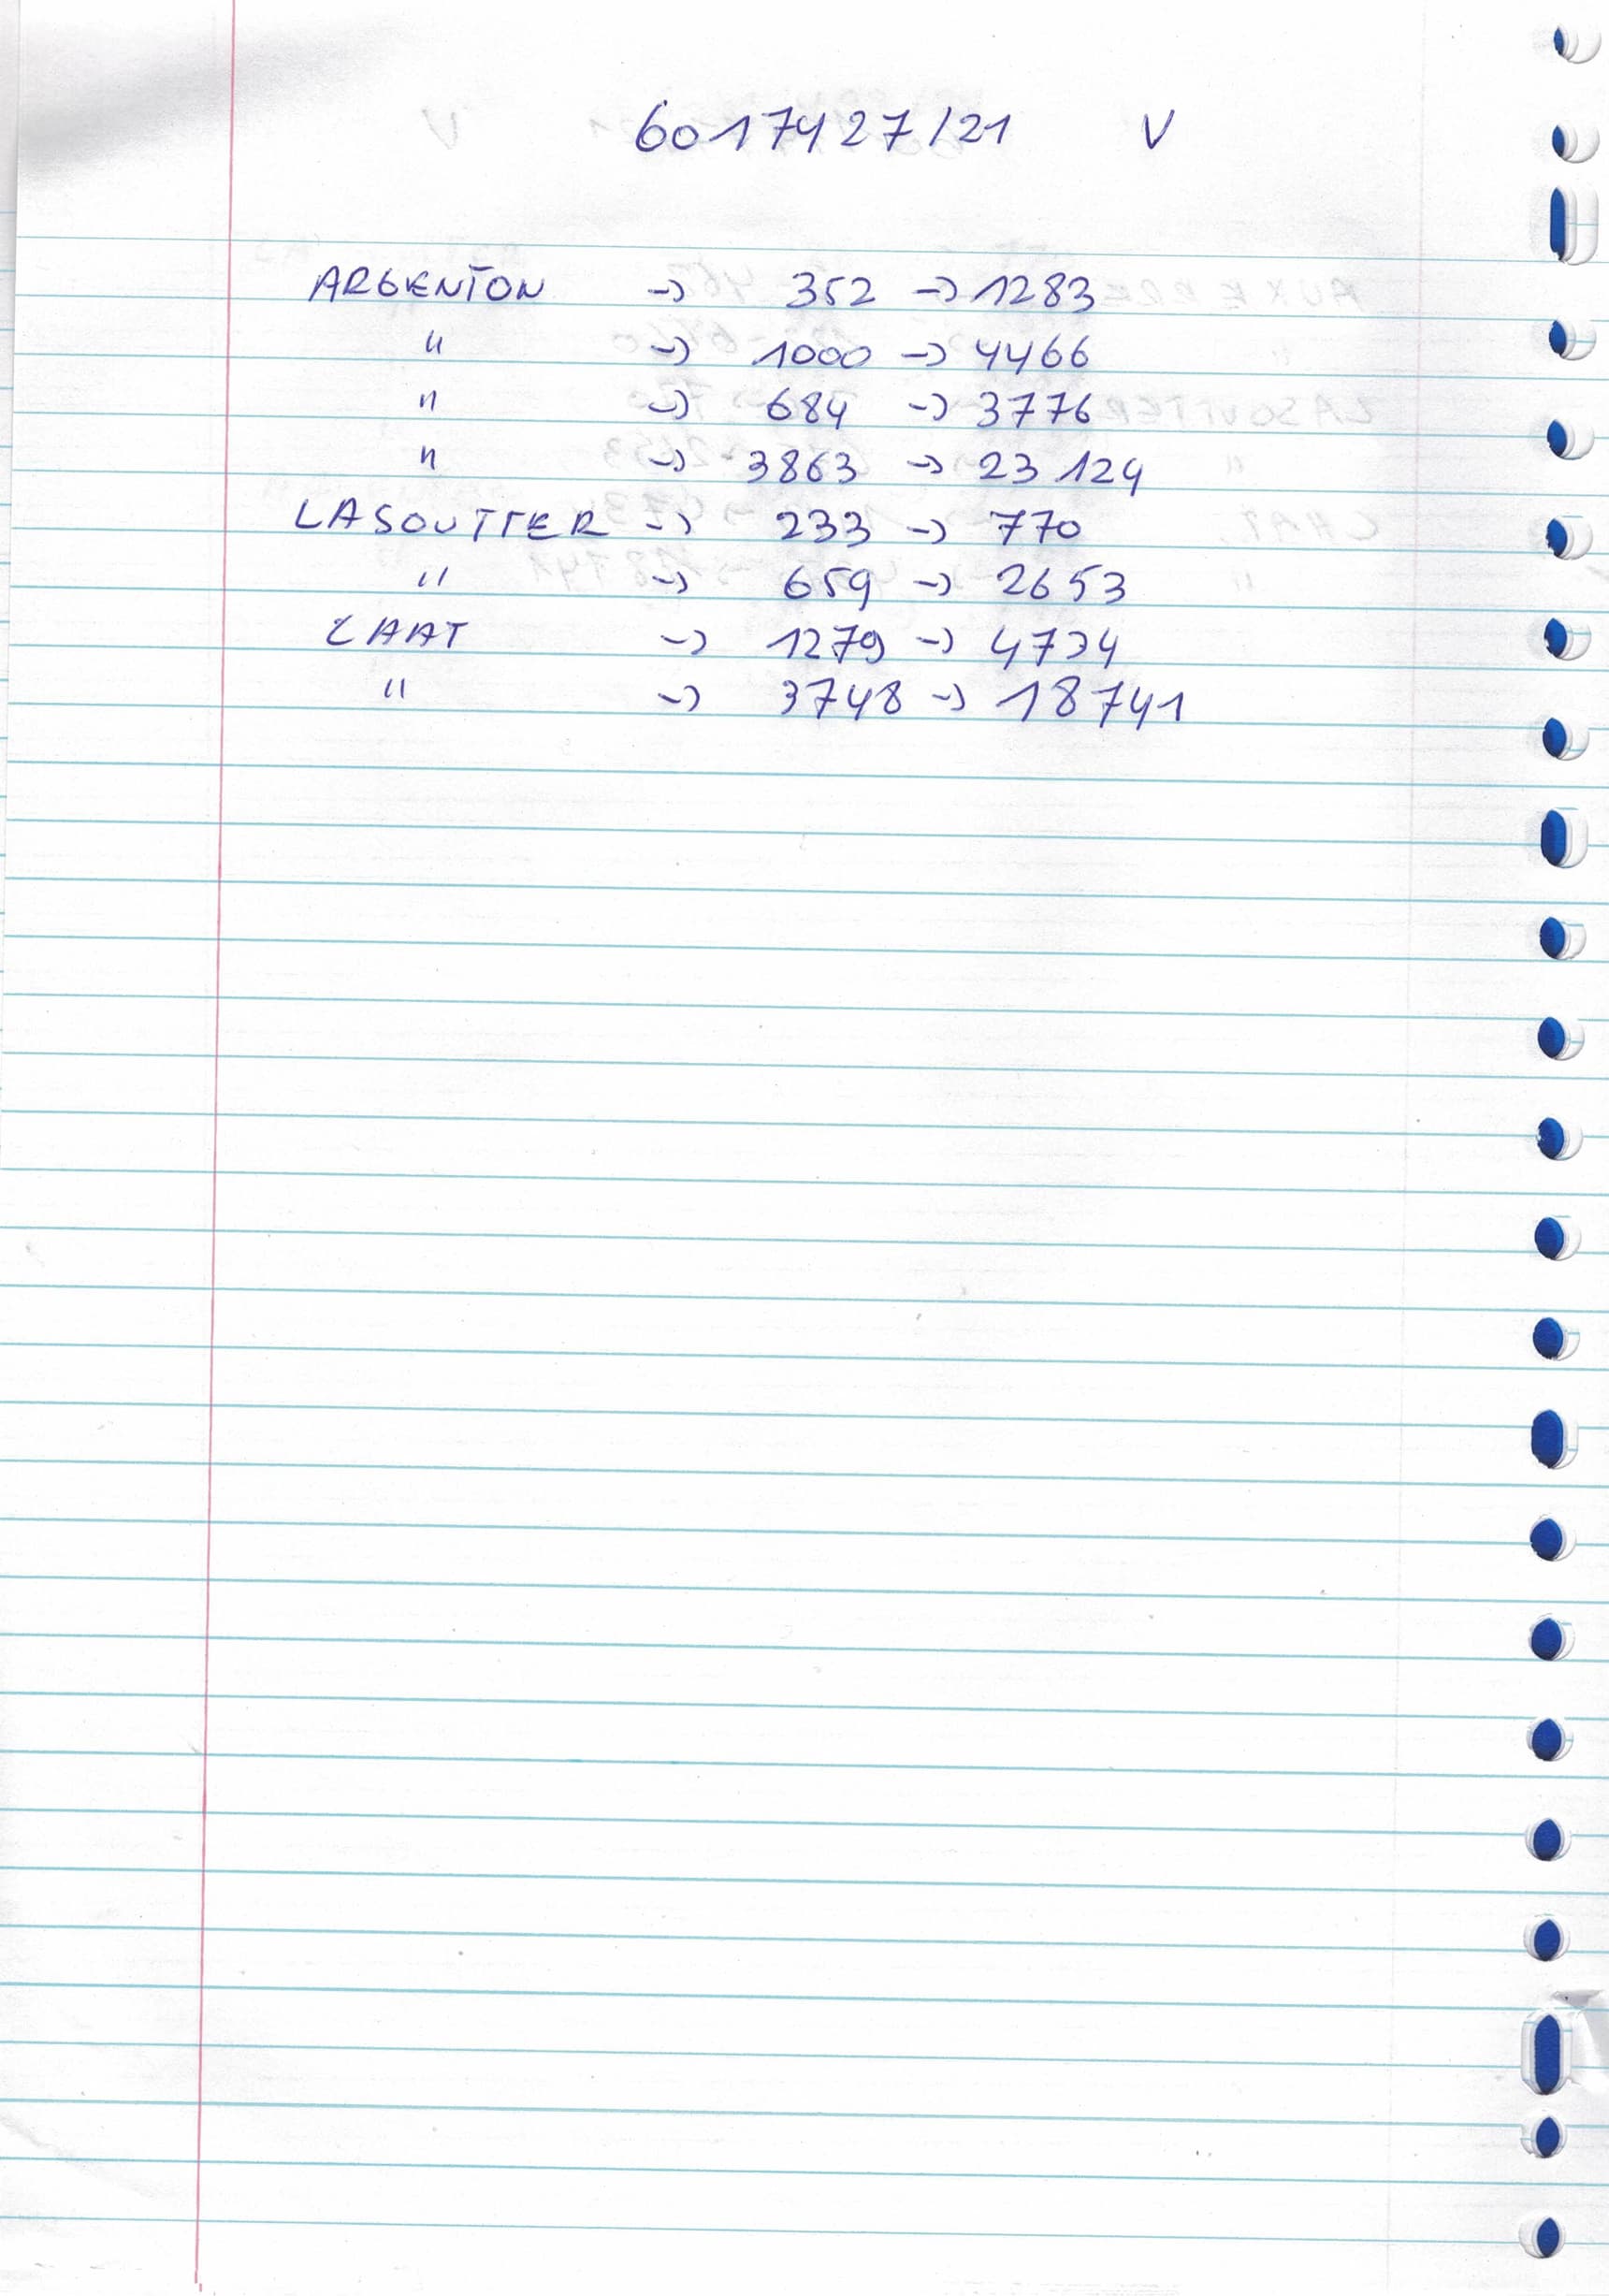 6017427/21 V
ARGENTON -> 352 -> 1283
" -> 1000 -> 4466
" -> 684 -> 3776
" -> 3863 -> 23 124
LASOUTTER -> 233 -> 770
" -> 659 -> 2653
CHAT -> 1279 -> 4734
" -> 3748 -> 18741